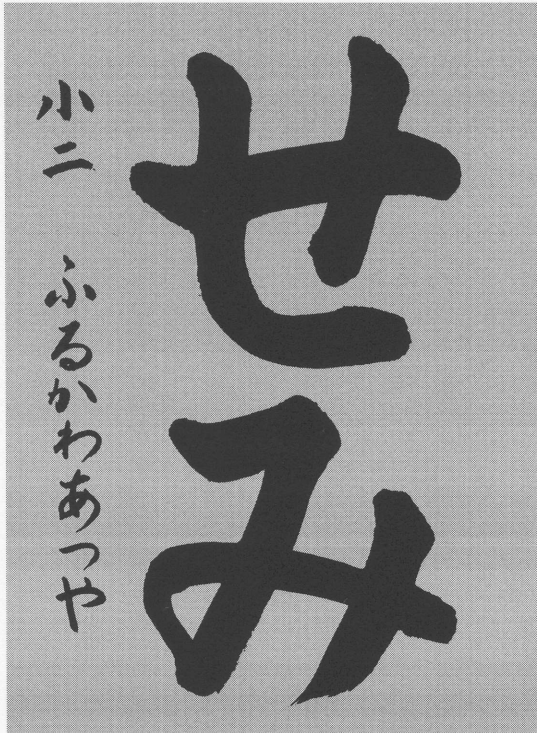 せみ
小二 ふるかわあつや